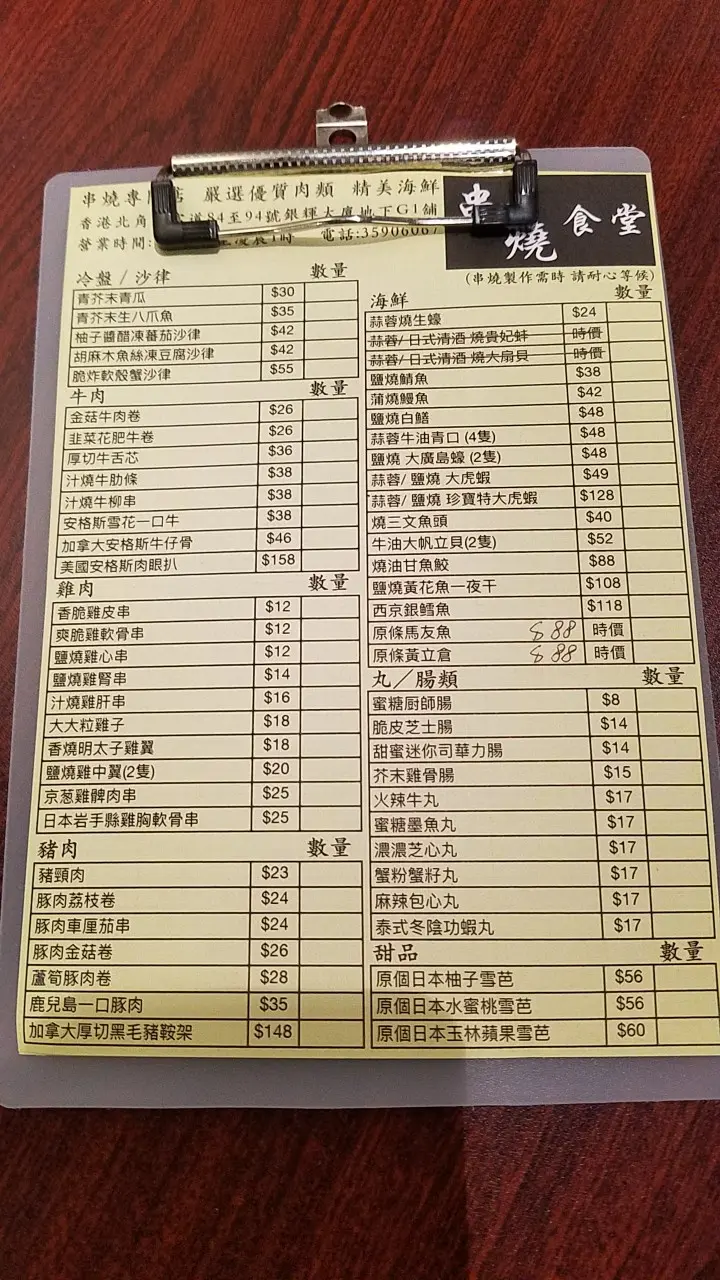 串燒專 店 嚴選優質肉類 精美海鮮
香港北角 道84至94號銀輝大廈地下G1舖
營業時間: 凌晨1時 電話:35906067
串燒食堂
(串燒製作需時 請耐心等候)
冷盤/沙律 數量
青芥末青瓜 $30
青芥末生八爪魚 $35
柚子醬醋凍蕃茄沙律 $42
胡麻木魚絲凍豆腐沙律 $42
脆炸軟殼蟹沙律 $55
牛肉 數量
金菇牛肉卷 $26
韭菜花肥牛卷 $26
厚切牛舌芯 $36
汁燒牛肋條 $38
汁燒牛柳串 $38
安格斯雪花一口牛 $38
加拿大安格斯牛仔骨 $46
美國安格斯肉眼扒 $158
雞肉 數量
香脆雞皮串 $12
爽脆雞軟骨串 $12
鹽燒雞心串 $12
鹽燒雞腎串 $14
汁燒雞肝串 $16
大大粒雞子 $18
香燒明太子雞翼 $18
鹽燒雞中翼(2隻) $20
京葱雞髀肉串 $25
日本岩手縣雞胸軟骨串 $25
豬肉 數量
豬頸肉 $23
豚肉荔枝卷 $24
豚肉車厘茄串 $24
豚肉金菇卷 $26
蘆筍豚肉卷 $28
鹿兒島一口豚肉 $35
加拿大厚切黑毛豬鞍架 $148
海鮮 數量
蒜蓉燒生蠔 $24
蒜蓉/日式清酒 燒貴妃蚌 時價
蒜蓉/日式清酒 燒大扇貝 時價
鹽燒鯖魚 $38
蒲燒鰻魚 $42
鹽燒白鱔 $48
蒜蓉牛油青口 (4隻) $48
鹽燒 大廣島蠔 (2隻) $48
蒜蓉/鹽燒 大虎蝦 $49
蒜蓉/鹽燒 珍寶特大虎蝦 $128
燒三文魚頭 $40
牛油大帆立貝(2隻) $52
燒油甘魚鮫 $88
鹽燒黃花魚一夜干 $108
西京銀鱈魚 $118
原條馬友魚 $88 時價
原條黃立倉 $88 時價
丸/腸類 數量
蜜糖廚師腸 $8
脆皮芝士腸 $14
甜蜜迷你司華力腸 $14
芥末雞骨腸 $15
火辣牛丸 $17
蜜糖墨魚丸 $17
濃濃芝心丸 $17
蟹粉蟹籽丸 $17
麻辣包心丸 $17
泰式冬陰功蝦丸 $17
甜品 數量
原個日本柚子雪芭 $56
原個日本水蜜桃雪芭 $56
原個日本玉林蘋果雪芭 $60